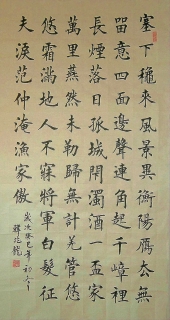 塞下穐來風景異衡陽鴈去無
畱意四面邊聲連角起千嶂裡
長煙落日孤城閉濁酒一盃家
萬里燕然未勒歸無計羌管悠
悠霜滿地人不寐將軍白髮征
夫淚范仲淹漁家傲
歲次癸巳年初